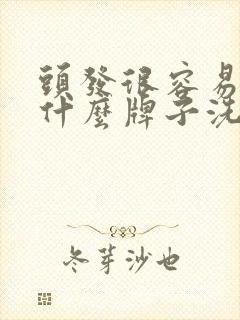 頭發很容易
什麼牌子洗
冬芽沙也